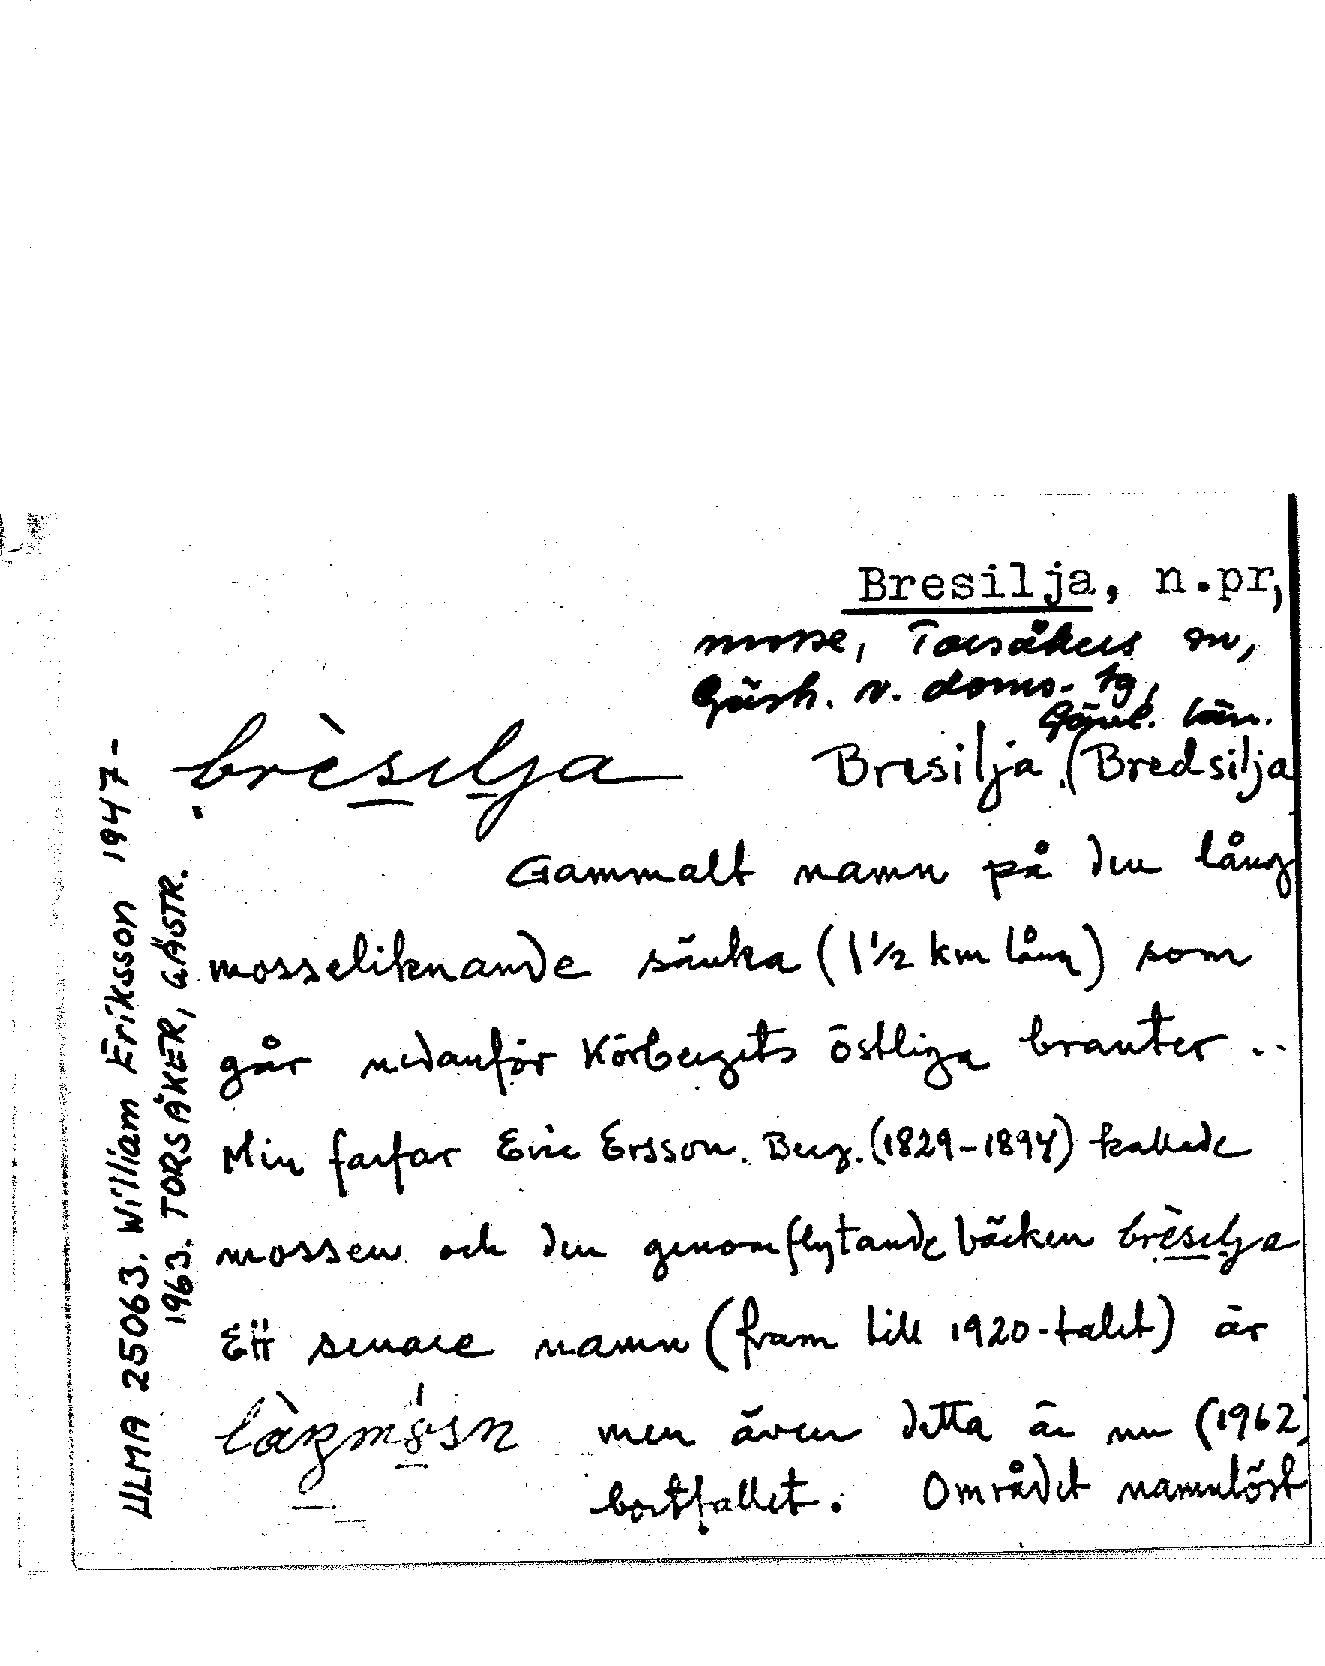 Bresilja, n.pr,
mosse, Torsåkers sn,
Gästr. v. doms. tg,
Gävl. län.
brèsilja Bresilja (Bredsilja
Gammalt namn på den lång
mosseliknande sänka (1½ km lång) som
går nedanför Körbergets östliga branter ..
Min farfar Eric Ersson. Berg. (1829-1894) kallade
mossen och den genomflytande bäcken brèsilja
Ett senare namn (fram till 1920-talet) är
men även detta är nu (1962)
bortfallet. Området namnlöst
ULMA 25063. William Eriksson 1947-
1963. TORSÅKER, GÄSTR.